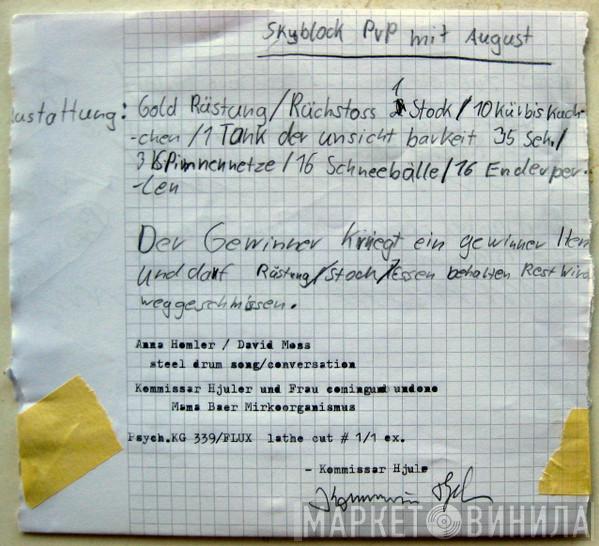 Skyblock PvP mit August
ustattung: Gold Rästung/Rüchstoss 1 Stock/10 Kürbiskuch-
-chen/1 Tank der unsichtbarkeit 35 Sek./
3 Spinnennetze/16 Schneebälle/16 Enderper-
-len
Der Gewinner kriegt ein gewinner Item
und darf Rästung/Stock/Essen behalten Rest wird
weggeschmissen.
Anna Homler / David Moss
steel drum song/conversation
Kommissar Hjuler und Frau comingum undone
Mama Baer Mirkoorganismus
Psych.KG 339/FLUX lathe cut # 1/1 ex.
- Kommissar Hjule
МАРКЕТ ВИНИЛА